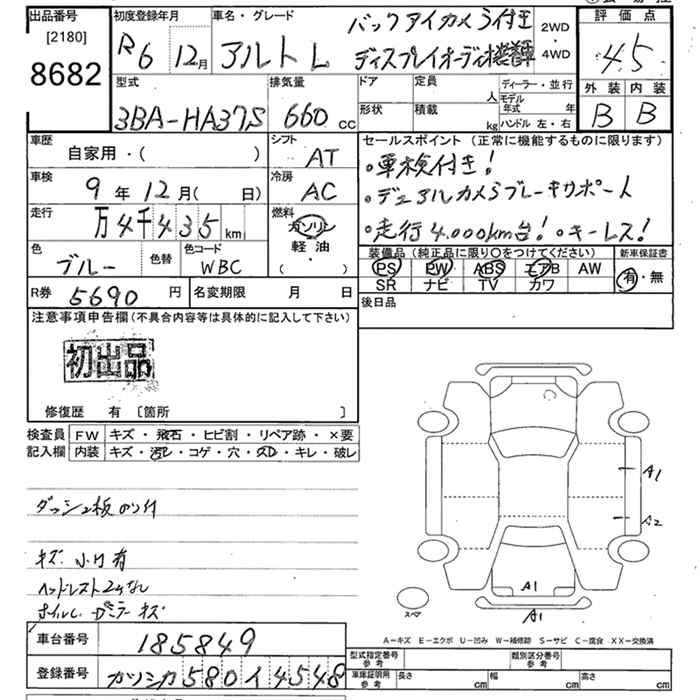 出品番号 初度登録年月 車名・グレード バックアイカメラ付 2WD 評価点
[2180] R6 12月 アルト L ディスプレイオーディオ装着車 4WD 4.5
8682
型式 排気量 ドア 定員 人 ディーラー・並行 外装 内装
3BA-HA37S 660 cc 形状 積載 kg モデル年式 年 B B
ハンドル 左・右
車歴 シフト セールスポイント (正常に機能するものに限ります)
自家用・( ) AT ・車検付き!
車検 冷房 ・デュアルカメラブレーキサポート
9年 12月( 日) AC ・走行4.000km台! ・キーレス!
走行 燃料
万4千435 km ガソリン 装備品 (純正品に限り○をつけてください) 新車保証書
軽油 PS PW ABS エアB AW 有・無
色 色替 色コード ・ SR ナビ TV カワ
ブルー WBC ( ) 後日品
R券 5690 円 名変期限 月 日
注意事項申告欄 (不具合内容等は具体的に記入して下さい)
初出品
修復歴 有 [箇所 ]
検査員 FW キズ・飛石・ヒビ割・リペア跡・×要
記入欄 内装 キズ・汚レ・コゲ・穴・スレ・キレ・破レ
A1
A2
キズ 小凹有
ヘッドレスト2ケなし
A1
スペア A1
A-キズ E-エクボ U-凹み W-補修跡 S-サビ C-腐食 XX-交換済
車台番号 185849
型式指定番号 参考 類別区分番号 参考
登録番号 カソシカ580イ4548
車庫証明用 参考 長さ cm 幅 cm 高さ cm